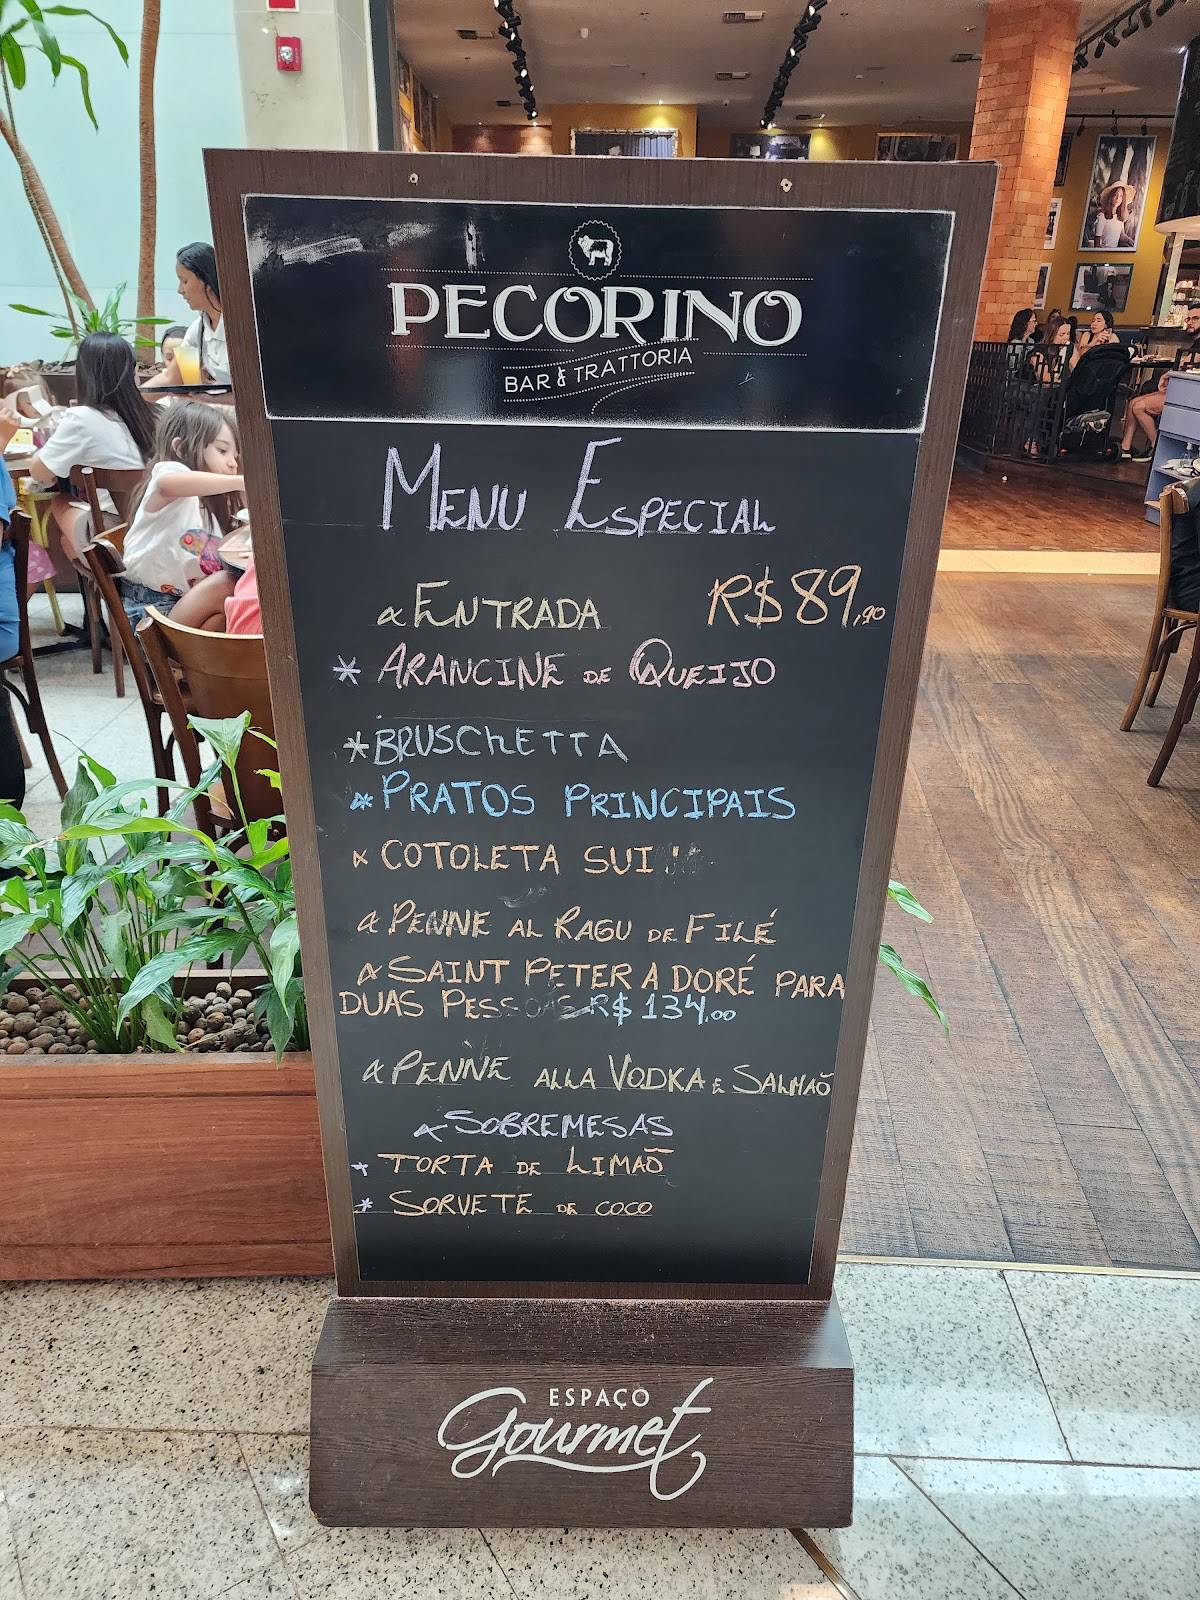 PECORINO
BAR & TRATTORIA
MENU ESPECIAL
ENTRADA R$89,90
* ARANCINE DE QUEIJO
* BRUSCHETTA
* PRATOS PRINCIPAIS
* COTOLETA SUI
PENNE AL RAGU DE FILÉ
SAINT PETER A DORÉ PARA
DUAS PESSOAS R$ 134,00
PENNE ALLA VODKA E SALMAÕ
SOBREMESAS
* TORTA DE LIMAÕ
* SORVETE DE COCO
ESPAÇO
Gourmet